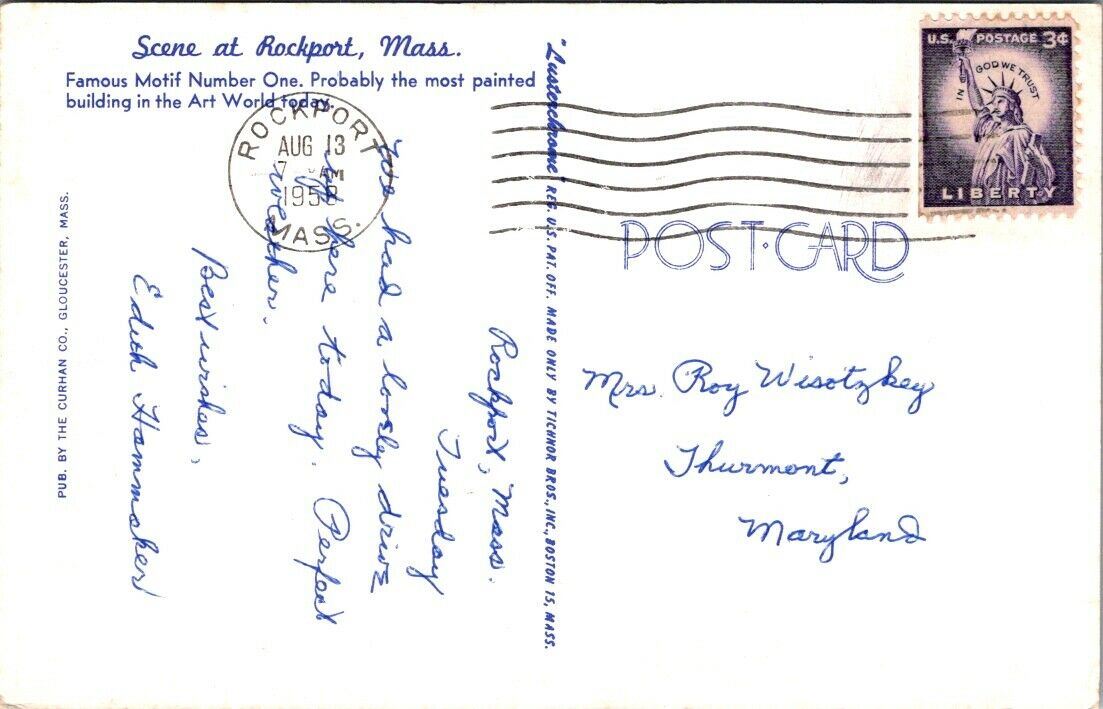 Scene at Rockport, Mass.
Famous Motif Number One. Probably the most painted
building in the Art World today.
ROCKPORT
AUG 13
7 AM
1958
MASS.
U.S. POSTAGE 3¢
IN GOD WE TRUST
LIBERTY
POST CARD
"Lusterchrome" REG. U.S. PAT. OFF. MADE ONLY BY TICHNOR BROS., INC., BOSTON 15, MASS.
PUB. BY THE CURHAN CO., GLOUCESTER, MASS.
Rockport, Mass.
Tuesday
We had a lovely drive
up here today. Perfect
weather.
Best wishes,
Edith Hammaker
Mrs. Roy Wisotzkey
Thurmont,
Maryland